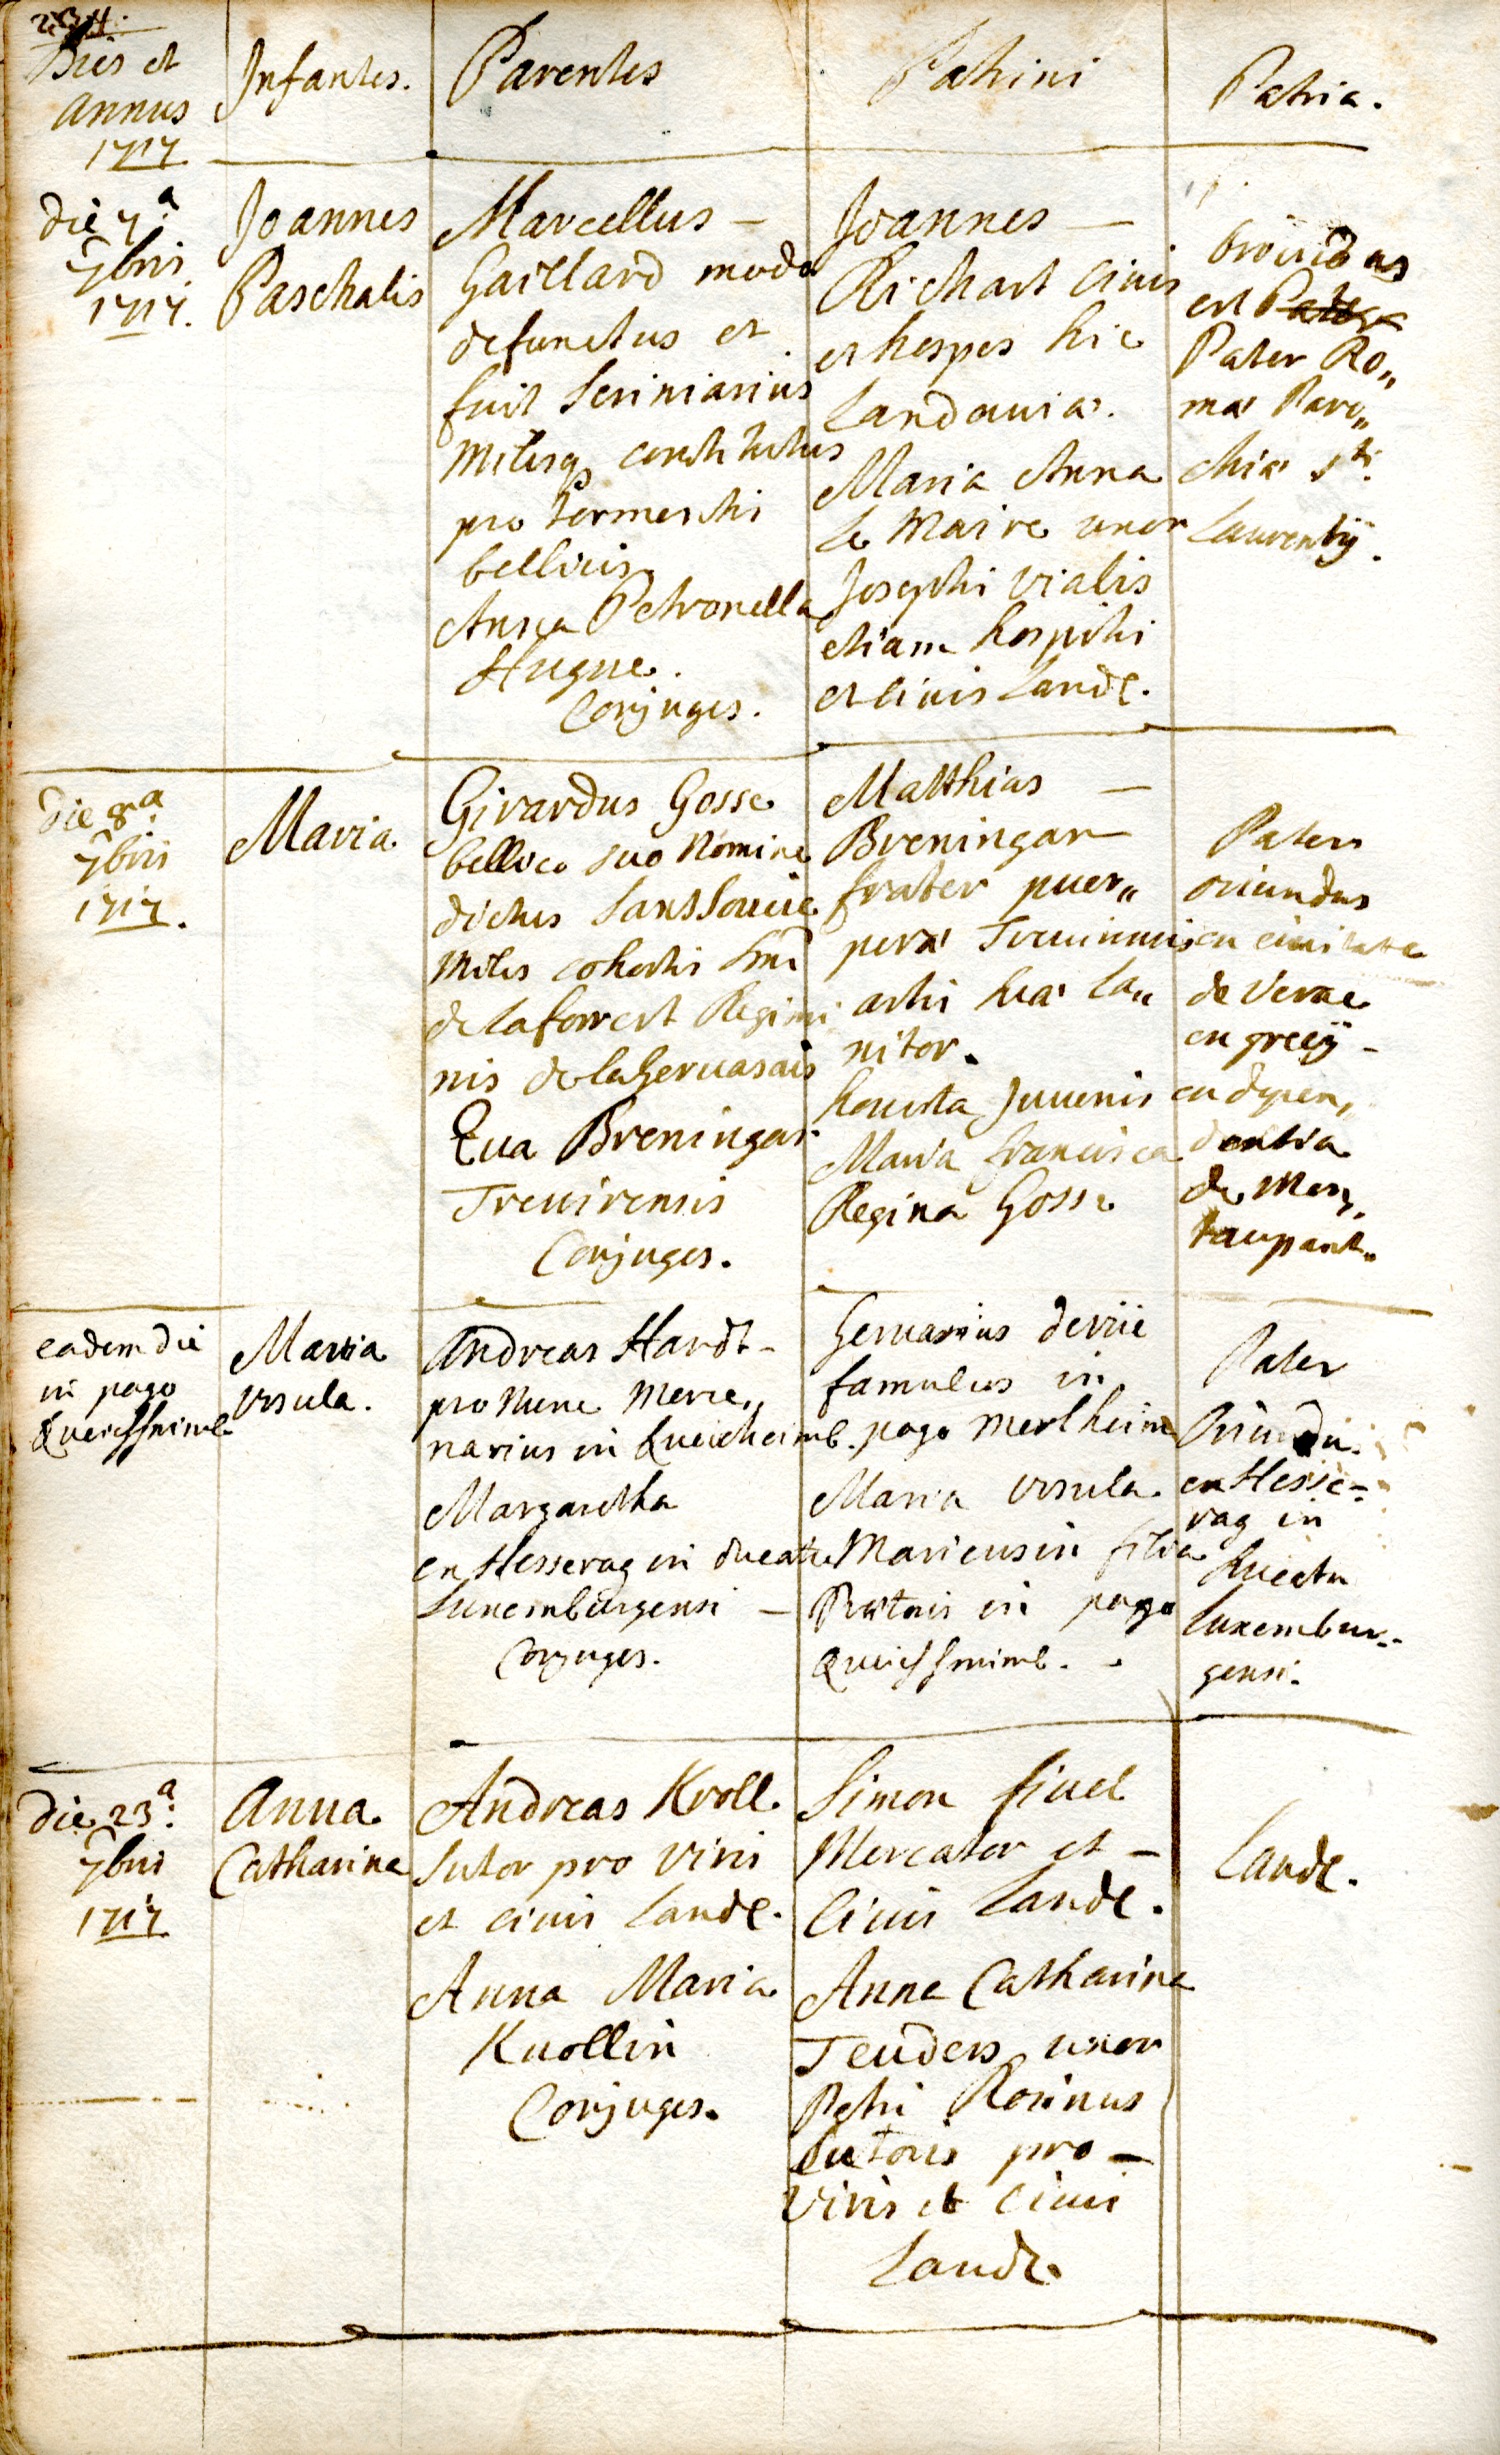 234.
Dies et
annus
1717
Infantes.
Parentes
Patrini
Patria.
die 7a
7bris
1717.
Joannes
Paschalis
Marcellus
Gaillard modo
defunctus et
fuit Scriniarius
Milesq constitutus
pro tormentis
bellicis
Anna Petronella
Hugue.
Conjuges.
Joannes
Richart Civis
et hospes hic
Landaviæ.
Maria Anna
le Maire uxor
Josephi Vialis
etiam hospitis
et civis Land.
oriundus
est Pater
Pater Ro„
mæ Paro„
chiæ Sti
Laurentij.
die 8a
7bris
1717.
Maria
Girardus Gosse
bellico suo Nomine
dictus Sanssoucie
Miles cohortis
de laforrest Regimi
nis de la Gervasais
Eva Breningar
Trevirensis
Conjuges.
Matthias
Breningar
frater puer„
peræ Trevirensis
artis suæ La„
nitor.
honesta Juvenis
Maria francisca
Regina Gosse
Pater
oriundus
ex civitate
de Verne
en
ex depen„
dentia
de
eadem die
in pago
Queichheimb
Maria
Ursula.
Andreas Hardt
pro Nunc Merce„
narius in Queicheimb.
Margaretha
ex Hesserag in ducatu
Luxemburgensi
Conjuges.
Gervasius
famulus in
pago Merlheim
Maria Ursula
Mariensin filia
in pago
Queichheimb.
Pater
Oriundu.
ex Hesse-
rag in
ducatu
Luxembur-
gensi.
die 23a
7bris
1717
Anna
Catharina
Andreas Kroll
Sutor pro viris
et civis Land.
Anna Maria
Knollin
Conjuges.
Simon
Mercator et
Civis Land.
Anna Catharina
Teuders uxor
Petri Rosinus
Sutoris pro
viris et Civis
Land.
Land.